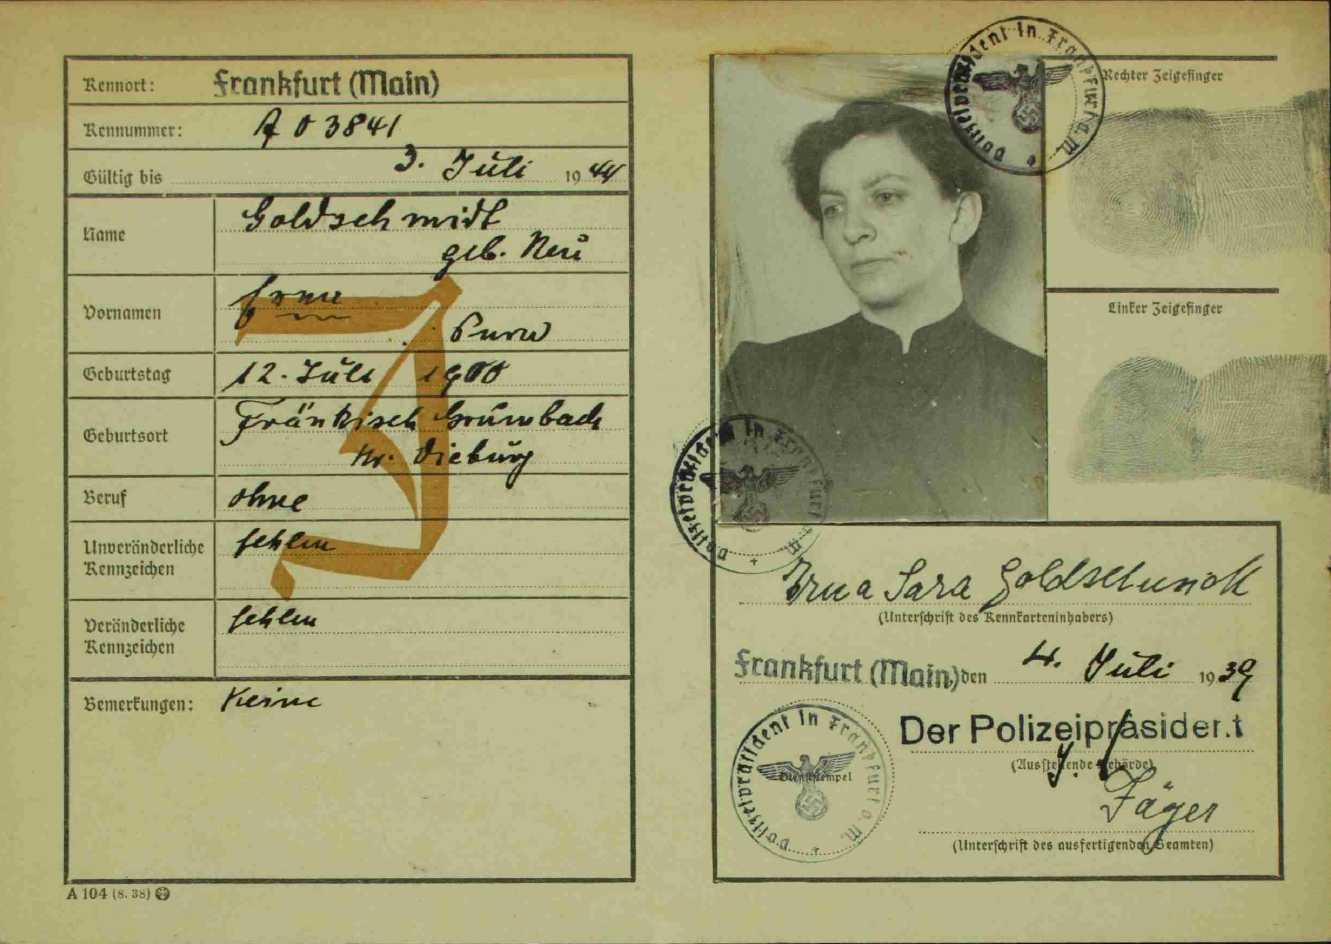 Kennort: Frankfurt (Main)
Kennummer: A 03841
Gültig bis 3. Juli 1944
Name Goldschmidt
geb. Neu
Vornamen Erna
Sara
Geburtstag 12. Juli 1900
Geburtsort Fränkisch Grumbach
Kr. Dieburg
Beruf ohne
Unveränderliche Kennzeichen fehlen
Veränderliche Kennzeichen fehlen
Bemerkungen: Keine
J
A 104 (8. 38)
Polizeipräsident in Frankfurt a. M.
Rechter Zeigefinger
Linker Zeigefinger
Polizeipräsident in Frankfurt a. M.
Erna Sara Goldschmidt
(Unterschrift des Kennkarteninhabers)
Frankfurt (Main) den 4. Juli 1939
Der Polizeipräsident
(Ausstellende Behörde)
Polizeipräsident in Frankfurt a. M.
Dienststempel
Jäger
(Unterschrift des ausfertigenden Beamten)